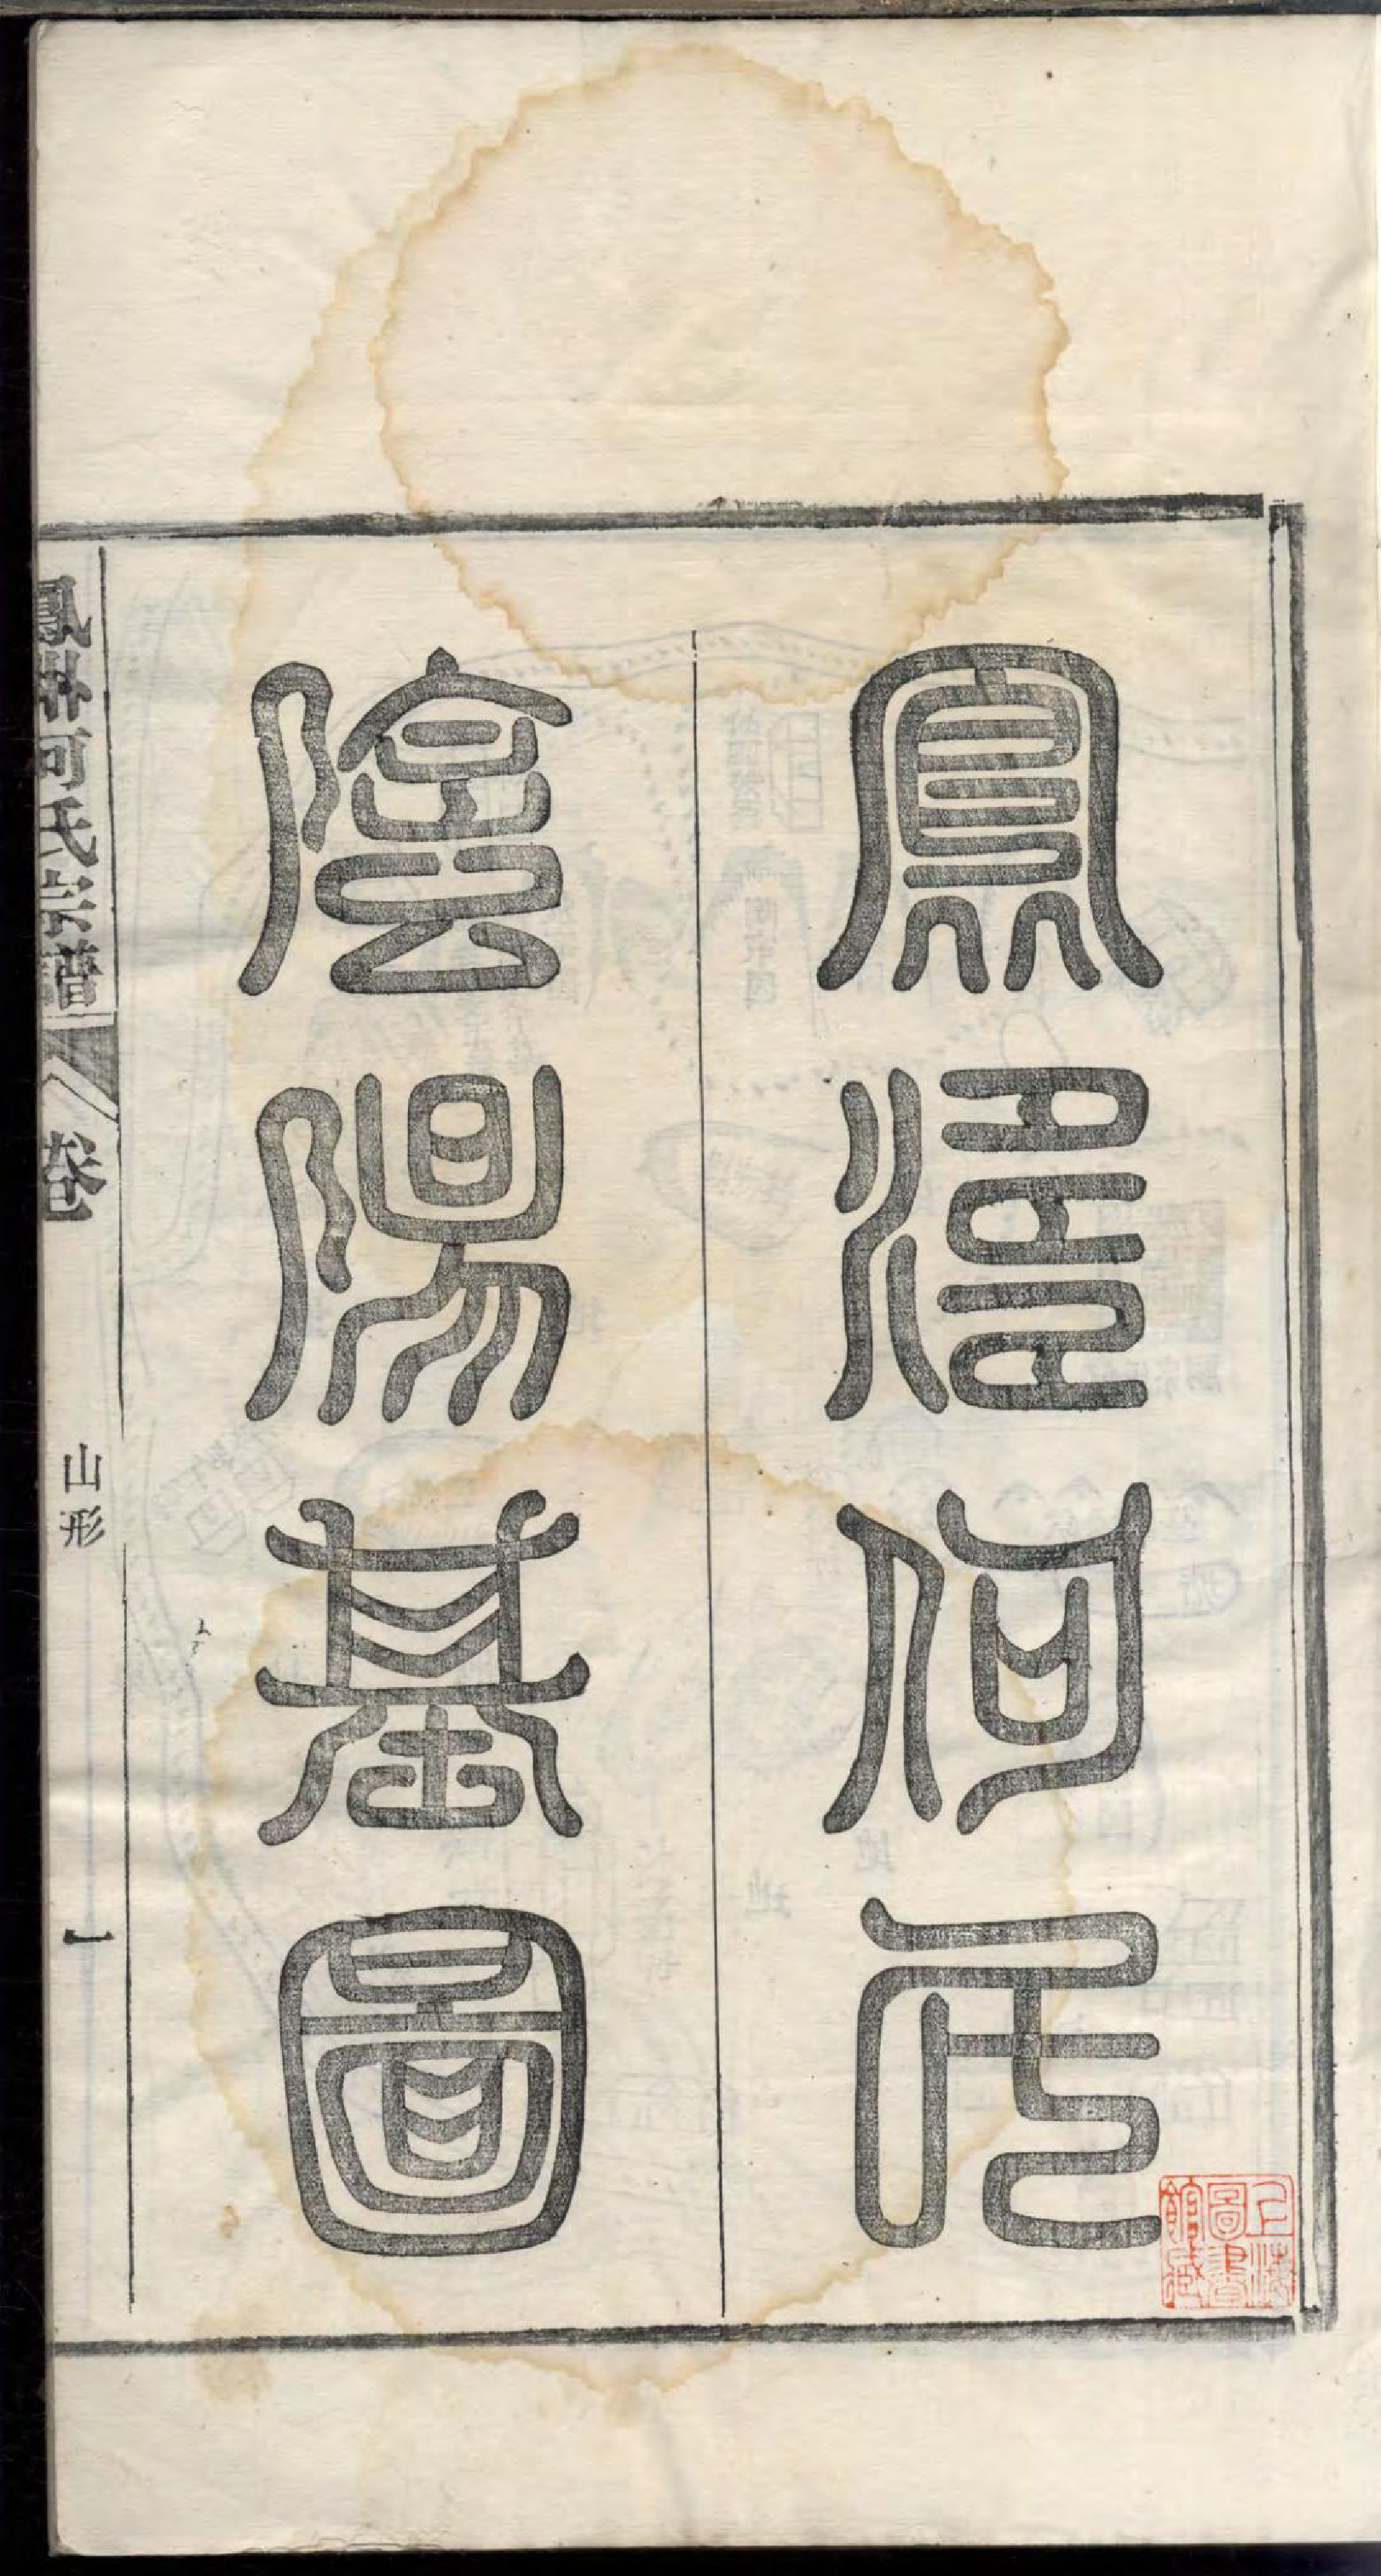 鳳何氏
陰陽基圖
鳳何氏宗譜
卷
山形
一
上海
圖書
館藏